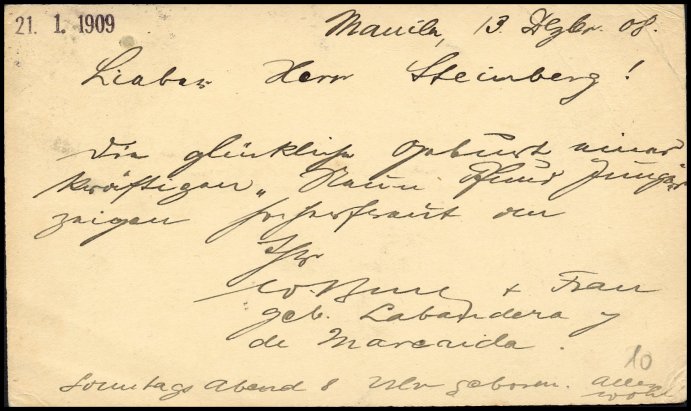 21. 1. 1909
Manila, 13. Dezbr. 08.
Lieber Herr Steinberg!
Die glückliche Geburt eines
kräftigen „Neun Pfund Jungen
zeigen hocherfreut an
Ihr
+ Frau
geb. Labandera y
de Marcaida.
10
Sonntags Abend 8 Uhr geboren. Alles
wohl